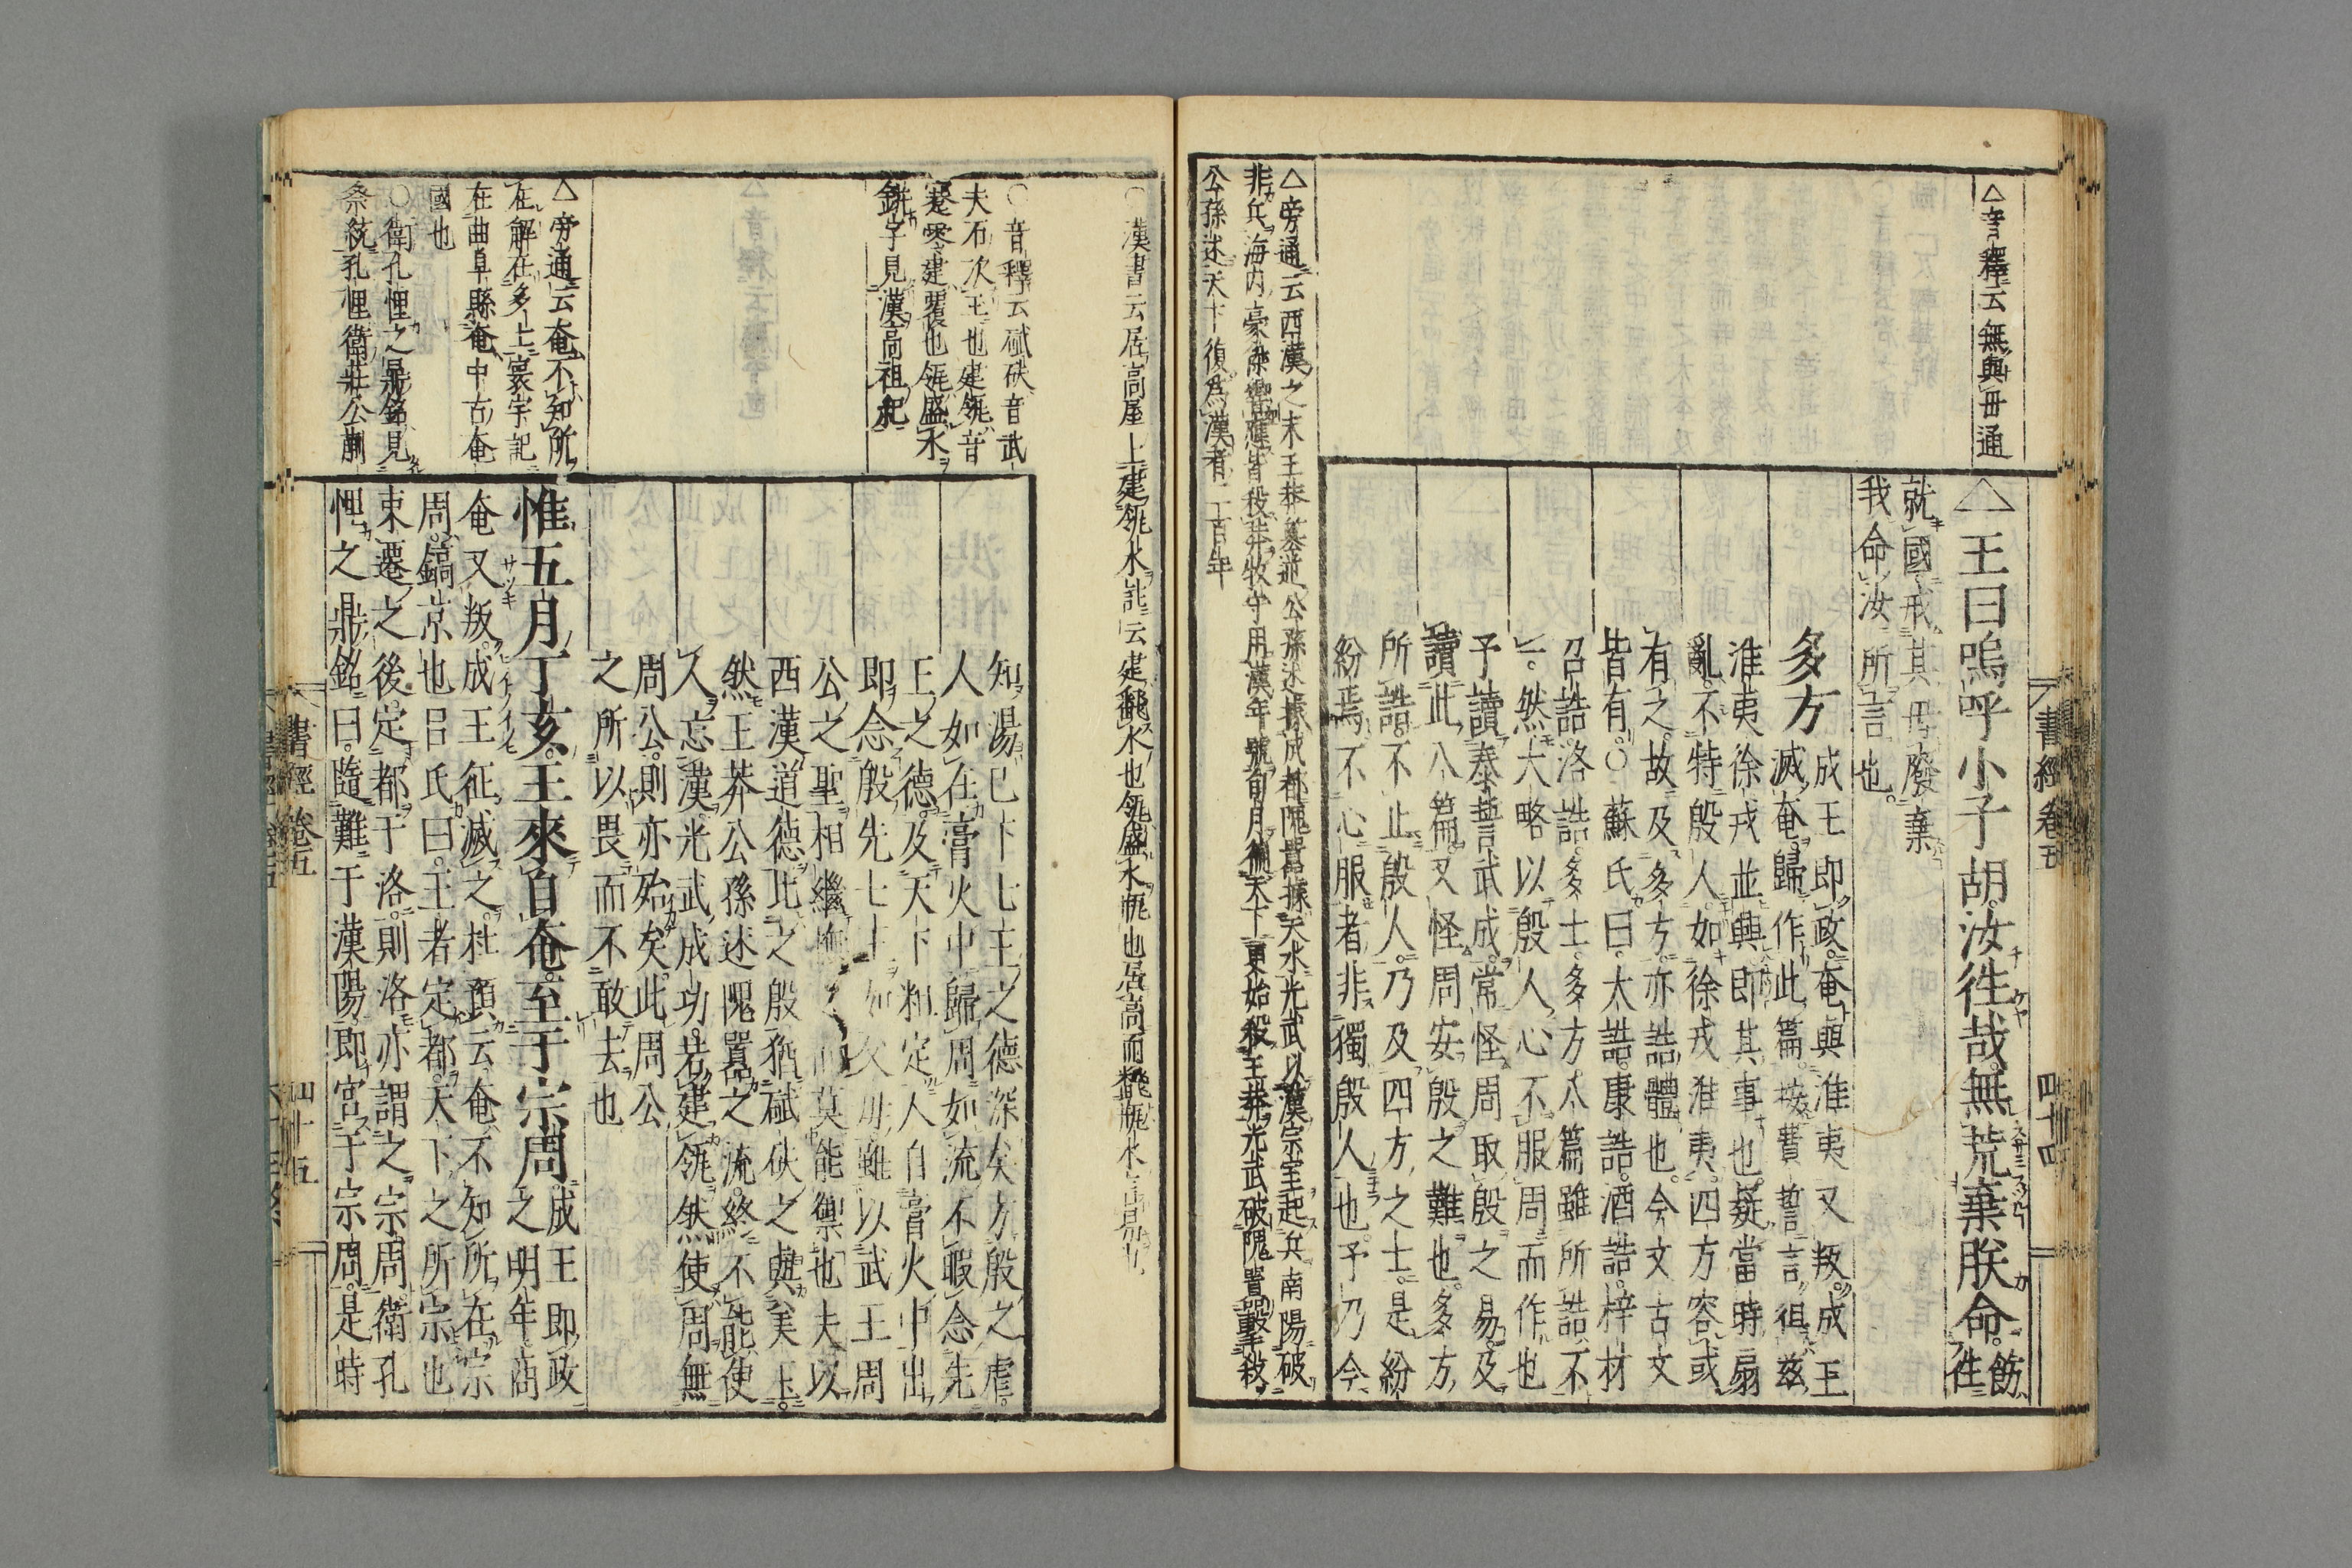 書經卷五　四十四
△音釋云無與毋通
△王曰嗚呼小子胡汝徃哉無荒棄朕命飭
往
就國戒其毋廢棄
我命汝所言也
多方　成王即政奄與淮夷又叛成王
滅奄歸作此篇按費誓言徂茲
淮夷徐戎並興即其事也疑當時扇
亂不特殷人如徐戎淮夷四方容或
有之故及多方亦誥體也今文古文
皆有○蘇氏曰大誥康誥酒誥梓材
召誥洛誥多士多方八篇雖所誥不
一然大略以殷人心不服周而作也
予讀泰誓武成常怪周取殷之易及
讀此八篇又怪周安殷之難也多方
所誥不止殷人乃及四方之士是紛
紛焉不心服者非獨殷人也予乃今
△旁通云西漢之末王莽簒逆公孫述據成都隗囂據天水光武以漢宗室起兵南陽破
非兵海内豪傑響應皆殺莽牧守用漢年號旬月徧天下更始殺王莽光武破隗囂擊殺
公孫述天下復爲漢者二百年
○漢書云居高屋上建瓴水註云建飜水也瓴盛水瓶也居高而飜瓶水言易也
○音釋云碔砆音武
夫石次王也建瓴音
蹇零建覆也瓴盛水
缾字見漢高祖紀
知湯已下七王之德深矣方殷之虐
人如在膏火中歸周如流不暇念先
王之德及天下粗定人自膏火中出
即念殷先七王如父母雖以武王周
公之聖相繼撫之而莫能禦也夫以
西漢道德比之殷猶碔砆之與美玉
然王莽公孫述隗囂之流終不能使
人忘漢光武成功若建瓴然使周無
周公則亦殆矣此周公
之所以畏而不敢去也
△旁通云奄不知所
在解在多士寰宇記
在曲阜縣奄中古奄
國也
惟五月丁亥王來自奄至于宗周成王即政
之明年商
奄又叛成王征滅之杜預云奄不知所在宗
周鎬京也呂氏曰王者定都天下之所宗也
東遷之後定都于洛則洛亦謂之宗周衛孔
悝之鼎銘曰隨難于漢陽即宮于宗周是時
○衛孔悝之鼎銘見
祭統孔悝衛莊公蒯
書經卷五　四十五